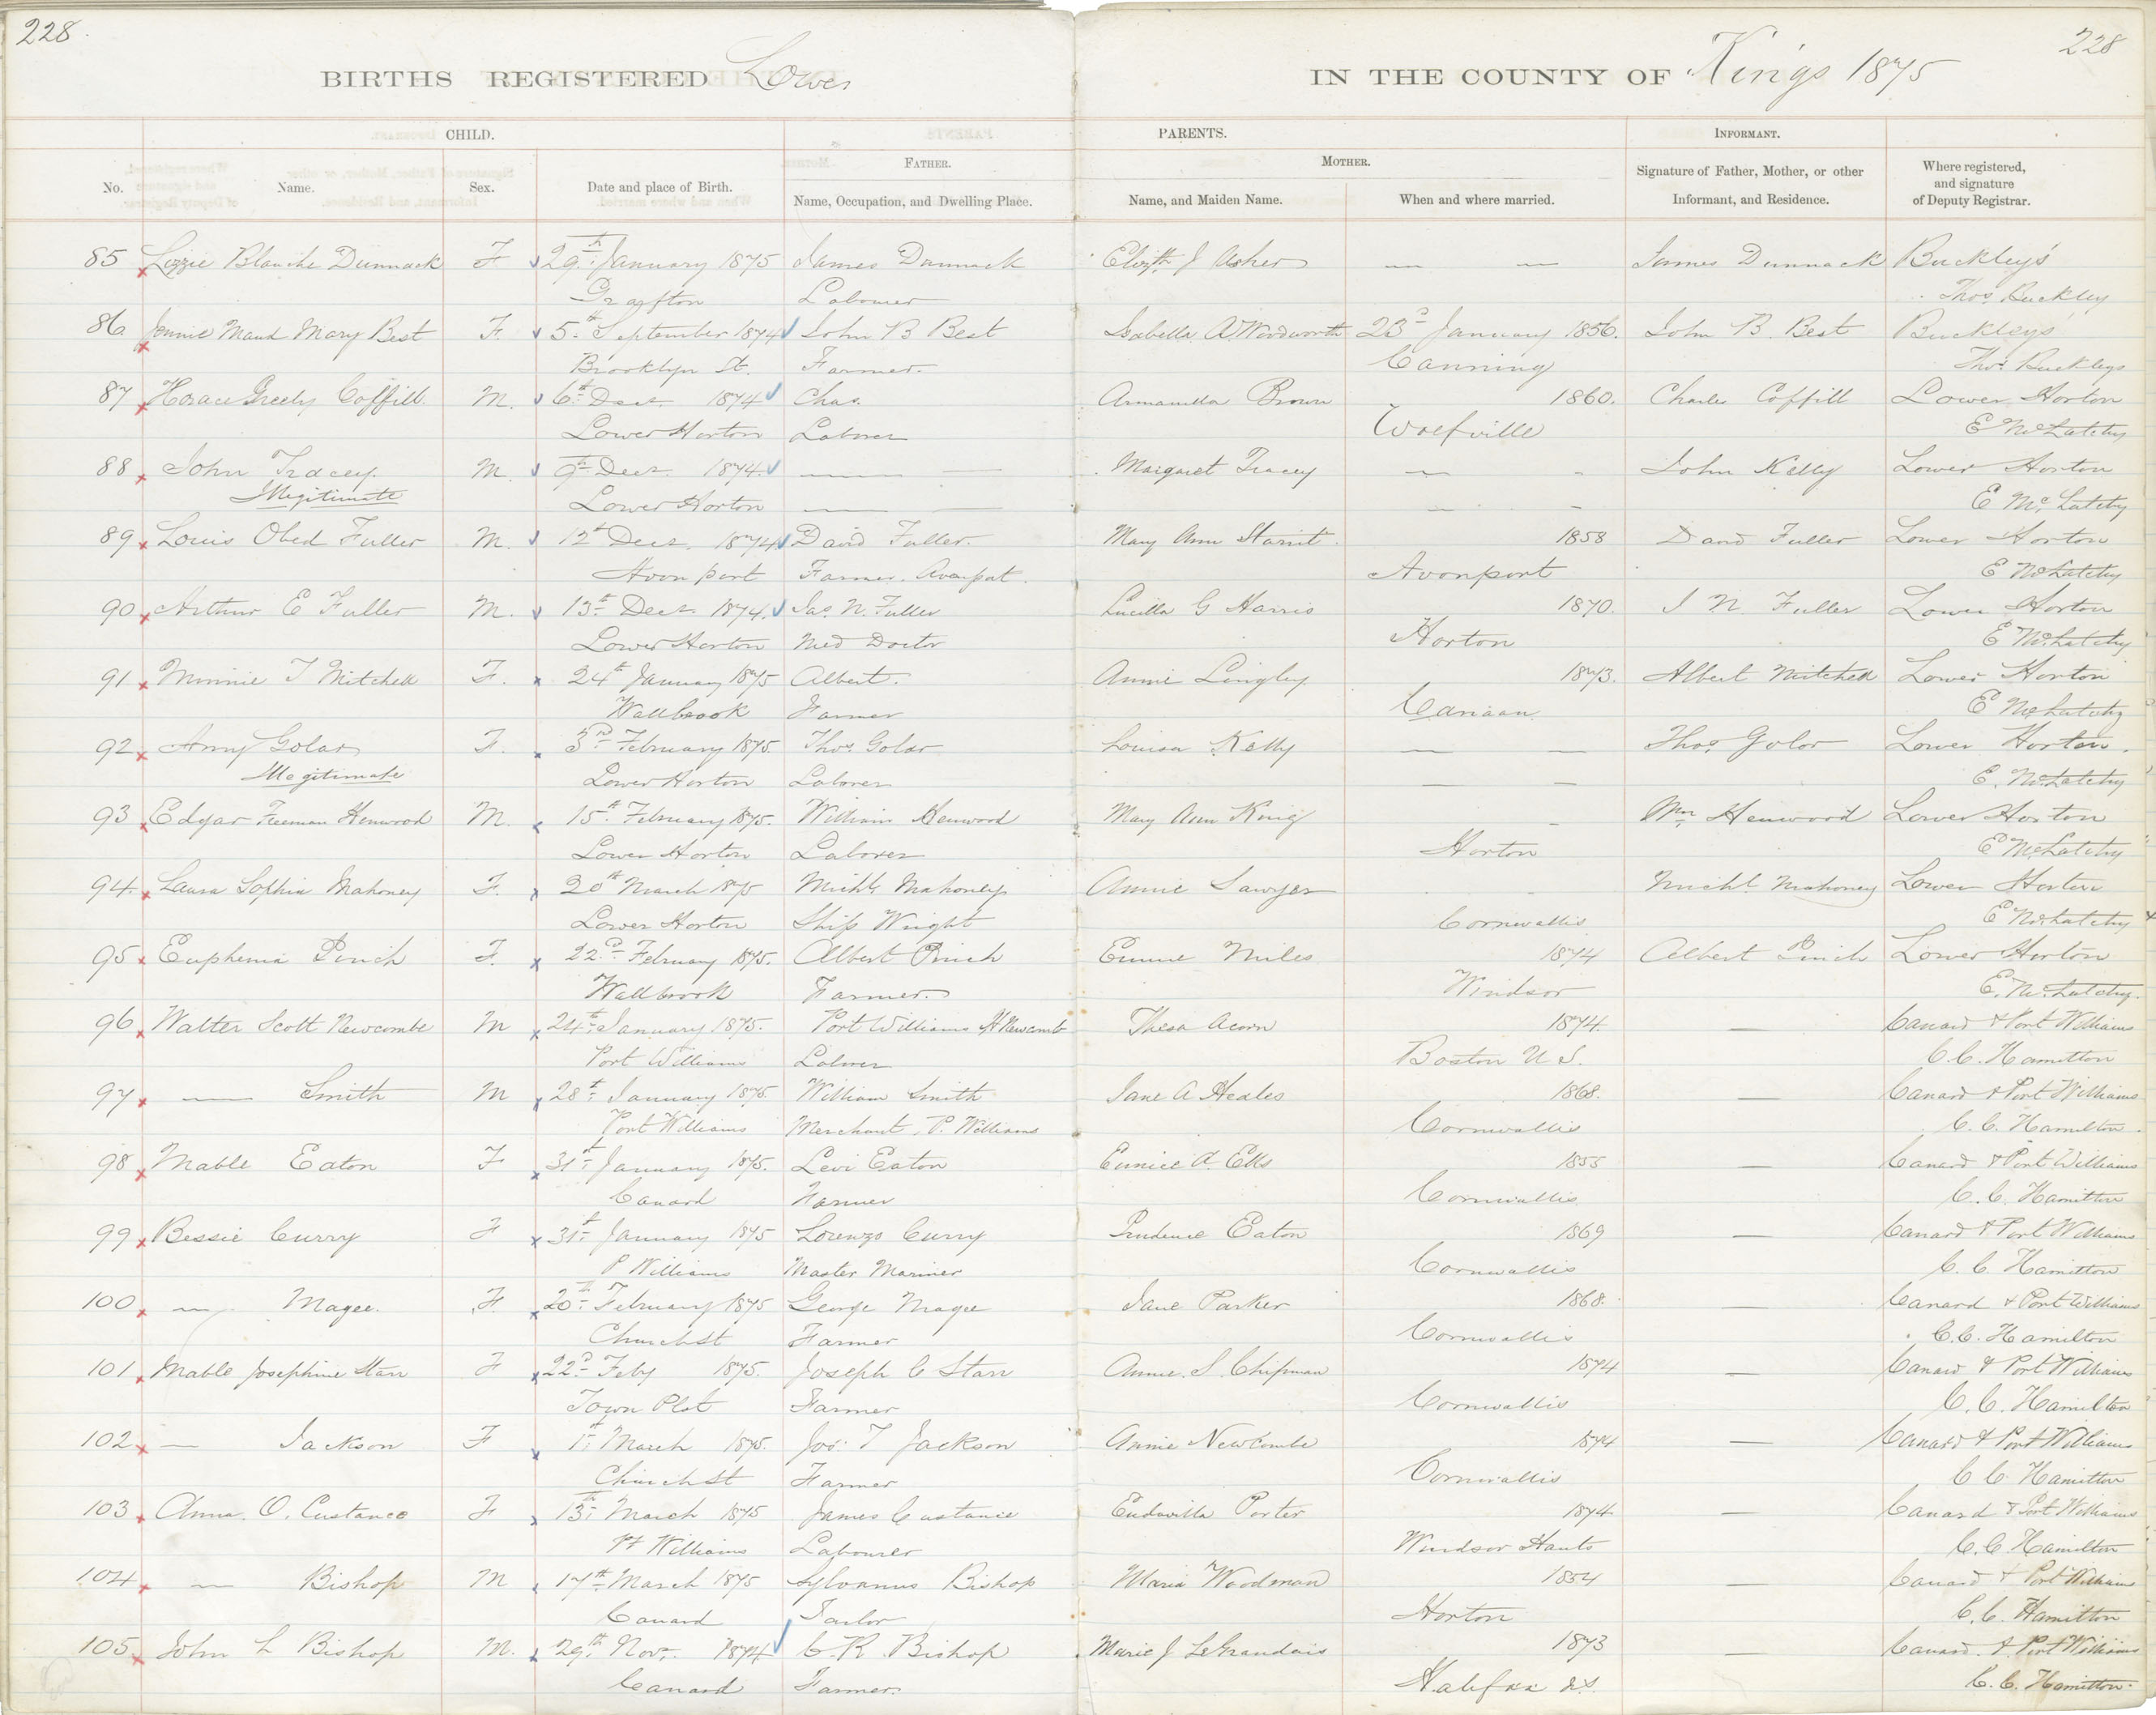 228.
228
BIRTHS REGISTERED Lower IN THE COUNTY OF Kings 1875
CHILD. PARENTS. INFORMANT.
FATHER. MOTHER.
No. Name. Sex. Date and place of Birth. Name, Occupation, and Dwelling Place. Name, and Maiden Name. When and where married. Signature of Father, Mother, or other Informant, and Residence. Where registered, and signature of Deputy Registrar.
85 Lizzie Blanche Dunnack F 29th January 1875 James Dunnack Elizth J Asher — — James Dunnack Buckley's
Grafton Labourer Thos Buckley
86 Jennie Maud Mary Best F. 5th September 1874 John B Best Isabella A Woodworth 23d January 1856. John B. Best Buckleys
Brooklyn St. Farmer. Canning Thos Buckleys
87 Horace Greely Coffill. M. 6th Decr. 1874 Chas. Brown 1860. Charles Coffill Lower Horton
Lower Horton Laborer Wolfville E McLatchy
88 John Tracey. M. 9th Decr. 1874. — — Margaret Tracey — - John Kelly Lower Horton
Illegitimate Lower Horton — — — - E McLatchy
89 Louis Obed Fuller M. 12th Decr. 1874 David Fuller. Mary Ann Starrit. 1858 David Fuller Lower Horton
Avonport Farmer. Avonport. Avonport E McLatchy
90 Arthur E Fuller M. 13th Decr. 1874. Jas. N. Fuller Lucilla G Harris 1870. J N. Fuller Lower Horton
Lower Horton Med Doctor Horton E McLatchy
91 Minnie J Mitchell F. 24th January 1875 Albert. Annie Lingley 1873. Albert Mitchell Lower Horton
Wallbrook Farmer Canaan E McLatchy
92 Amy Golar F. 3rd February 1875 Thos Golar Louisa Kelly — — Thos Golor Lower Horton.
Illegitimate Lower Horton Laborer — — E. McLatchy
93 Edgar Freeman Henwood M. 15th February 1875. William Henwood Mary Ann King - Wm Henwood Lower Horton
Lower Horton Laborer Horton E McLatchy
94. Laura Sophia Mahoney F. 20th March 1875 Michl. Mahoney Annie Sawyer Michl. Mahoney Lower Horton
Lower Horton Ship Wright Cornwallis E McLatchy
95 Euphemia Pinch F. 22nd February 1875. Albert Pinch Emmie Miles 1874 Albert Pinch Lower Horton
Wallbrook Farmer. Windsor E. McLatchy.
96 Walter Scott Newcombe M 24th January 1875. Port Williams H Newcomb Acorn 1874. — Canard & Port Williams
Port Williams Labourer Boston U S. C. C. Hamilton
97 — Smith M 28th January 1875. William Smith Jane A Heales 1868. — Canard & Port Williams
Port Williams Merchant, P. Williams Cornwallis C. C. Hamilton
98 Mable Eaton F 31st January 1875. Levi Eaton Eunice A. Ells 1855 — Canard & Port Williams
Canard Farmer Cornwallis C. C. Hamilton
99 Bessie Curry F 31st January 1875 Lorenzo Curry Prudence Eaton 1869 — Canard & Port Williams
P Williams Master Mariner Cornwallis C. C. Hamilton
100 — Magee. F. 20th February 1875 George Magee Jane Parker 1868. — Canard & Port Williams
Church St Farmer Cornwallis C. C. Hamilton
101 Mable Josephine Starr F 22d Feby 1875. Joseph C Starr Annie. S. Chipman 1874 — Canard & Port Williams
Town Plot Farmer Cornwallis C. C. Hamilton
102 — Jackson F 1st March 1875. Jos. T Jackson Annie Newcombe 1874 — Canard & Port Williams
Church St Farmer Cornwallis C C Hamilton
103 Anna. O. Custance F 13th March 1875 James Custance Porter 1874 — Canard & Port Williams
Pt Williams Labourer Windsor Hants C. C. Hamilton
104 — Bishop M 17th March 1875 Sylvanus Bishop Maria Woodman 1854 — Canard & Port Williams
Canard Tailor Horton C. C. Hamilton
105 John L Bishop M. 29th Novr. 1874 C. R. Bishop Marie J LeGrandais 1873 — Canard & Port Williams
Canard Farmer. Halifax N.S. C. C. Hamilton.